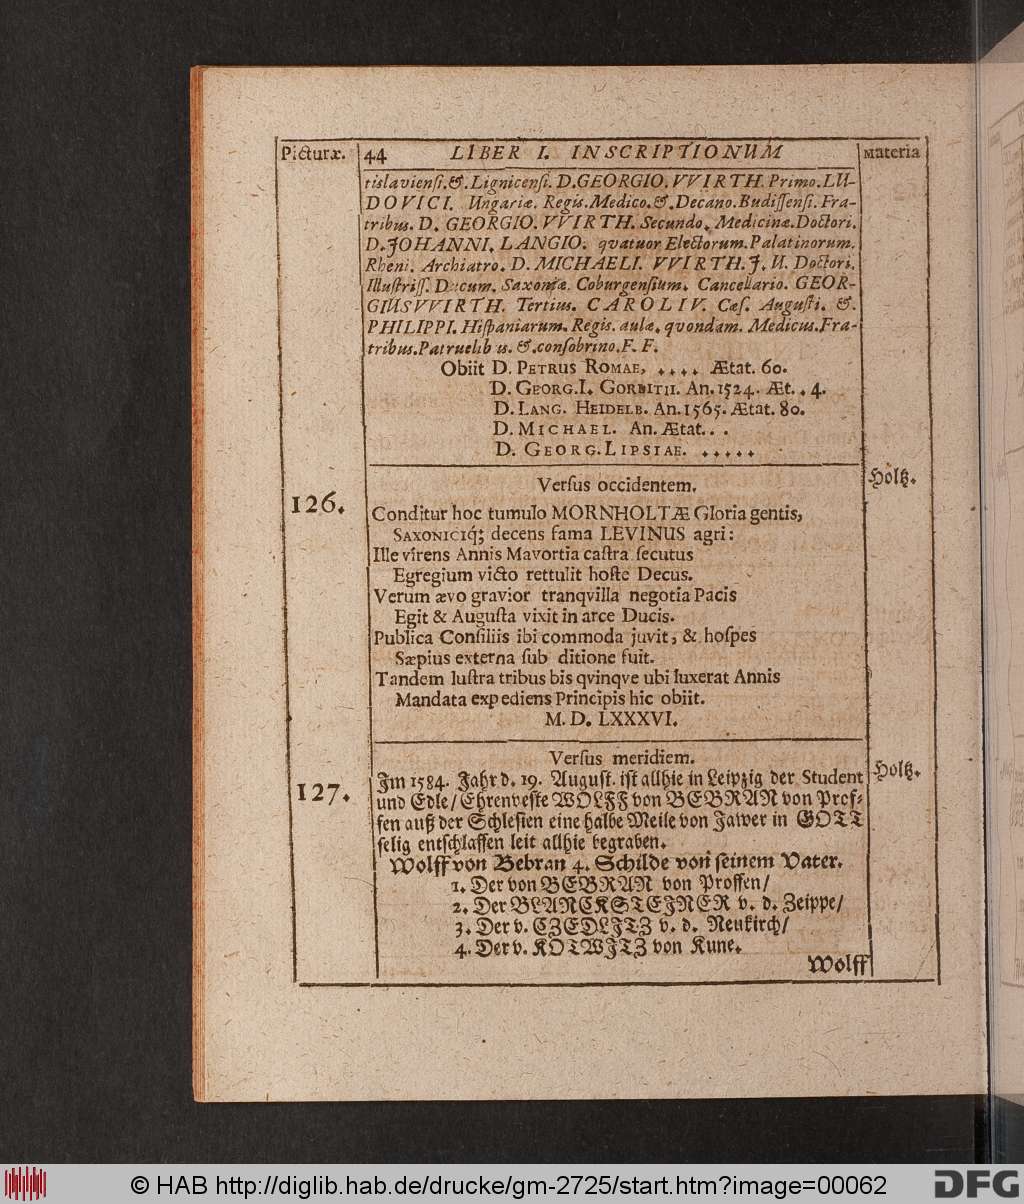 Picturæ. 44 LIBER I. INSCRIPTIONUM Materia
tislaviensi.&.Lignicensi. D.GEORGIO. VVIRTH. Primo.LU-
DOVICI. Ungariæ. Regis.Medico.&.Decano.Budissensi.Fra-
tribus. D. GEORGIO. VVIRTH. Secundo. Medicinæ.Doctori.
D.JOHANNI. LANGIO. qvatuor Electorum.Palatinorum.
Rheni. Archiatro. D. MICHAELI. VVIRTH. J. U. Doctori.
Illustriss. Ducum. Saxoniæ. Coburgensium. Cancellario. GEOR-
GIUSVVIRTH. Tertius. CAROLI V. Cæs. Augusti. &.
PHILIPPI. Hispaniarum. Regis. aulæ. qvondam. Medicus.Fra-
tribus.Patruelib us. &.consobrino.F. F.
Obiit D. PETRUS ROMAE, .... Ætat. 60.
D. GEORG.I. GORBITII. An.1524. Æt. . 4.
D. LANG. HEIDELB. An.1565. Ætat. 80.
D. MICHAEL. An. Ætat. . .
D. GEORG. LIPSIAE. .....
Versus occidentem. Holtz.
126. Conditur hoc tumulo MORNHOLTÆ Gloria gentis,
SAXONICIq́; decens fama LEVINUS agri:
Ille vîrens Annis Mavortia castra secutus
Egregium victo rettulit hoste Decus.
Verum ævo gravior tranqvilla negotia Pacis
Egit & Augusta vixit in arce Ducis.
Publica Consiliis ibi commoda juvit, & hospes
Sæpius externa sub ditione fuit.
Tandem lustra tribus bis qvinqve ubi luxerat Annis
Mandata expediens Principis hic obiit.
M. D. LXXXVI.
Versus meridiem. Holtz.
127. Im 1584. Jahr d. 19. August. ist allhie in Leipzig der Student
und Edle/ Ehrenveste WOLFF von BEBRAN von Prof-
fen auß der Schlesien eine halbe Meile von Jawer in GOTT
selig entschlaffen leit allhie begraben.
Wolff von Bebran 4. Schilde von seinem Vater.
1. Der von BEBRAN von Proffen/
2. Der BLANCKSTEINER v. d. Zeippe/
3. Der v. CZEDLITZ v. d. Neukirch/
4. Der v. KOTWITZ von Kune.
Wolff
© HAB http://diglib.hab.de/drucke/gm-2725/start.htm?image=00062
DFG